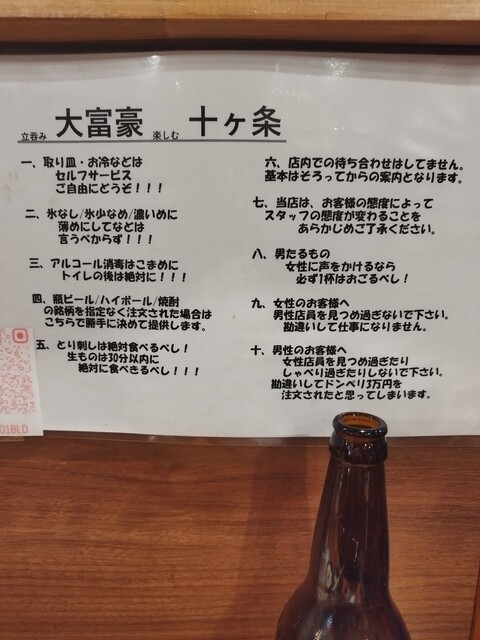 立呑み 大富豪 楽しむ 十ヶ条
一、取り皿・お冷などは
セルフサービス
ご自由にどうぞ！！！
二、氷なし/氷少なめ/濃いめに
薄めにしてなどは
言うべからず！！！
三、アルコール消毒はこまめに
トイレの後は絶対に！！！
四、瓶ビール/ハイボール/焼酎
の銘柄を指定なく注文された場合は
こちらで勝手に決めて提供します。
五、とり刺しは絶対食べるべし！
生ものは30分以内に
絶対に食べきるべし！！！
六、店内での待ち合わせはしてません。
基本はそろってからの案内となります。
七、当店は、お客様の態度によって
スタッフの態度が変わることを
あらかじめご了承ください。
八、男たるもの
女性に声をかけるなら
必ず1杯はおごるべし！
九、女性のお客様へ
男性店員を見つめ過ぎないで下さい。
勘違いして仕事になりません。
十、男性のお客様へ
女性店員を見つめ過ぎたり
しゃべり過ぎたりしないで下さい。
勘違いしてドンペリ3万円を
注文されたと思ってしまいます。
01BLD